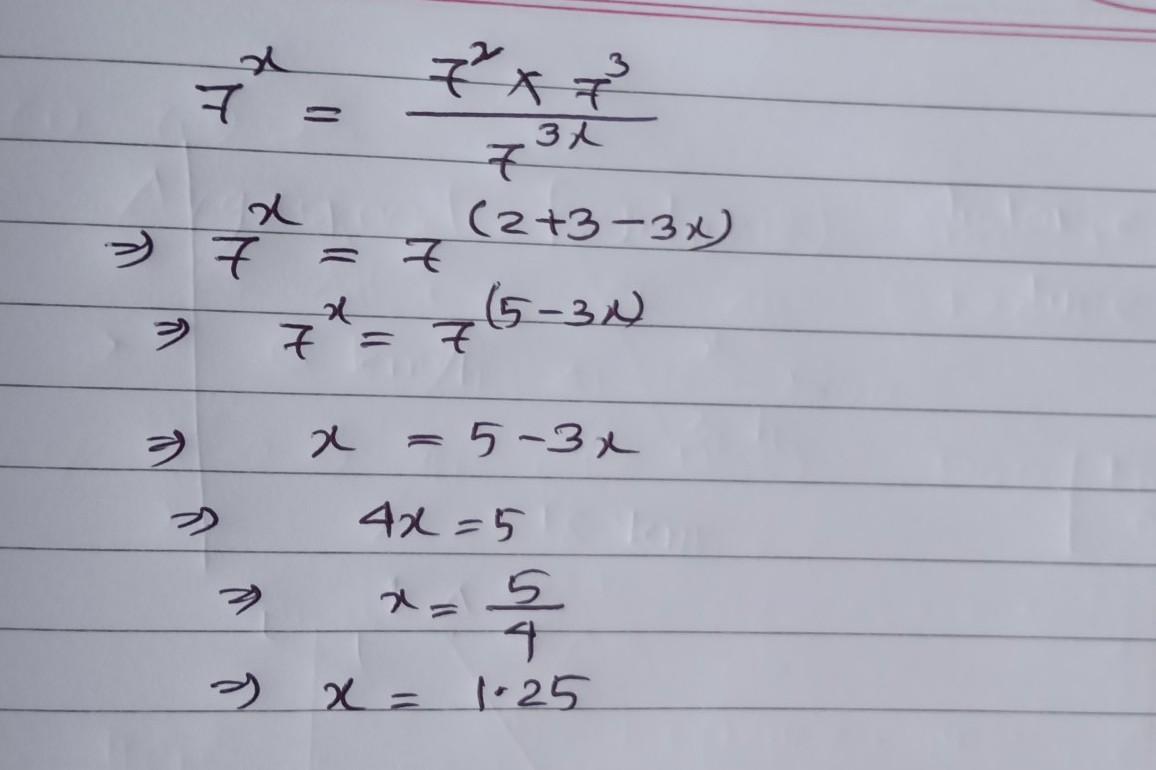 7^x = (7^2 × 7^3) / 7^(3x)
⇒ 7^x = 7^(2+3-3x)
⇒ 7^x = 7^(5-3x)
⇒ x = 5-3x
⇒ 4x = 5
⇒ x = 5/4
⇒ x = 1·25